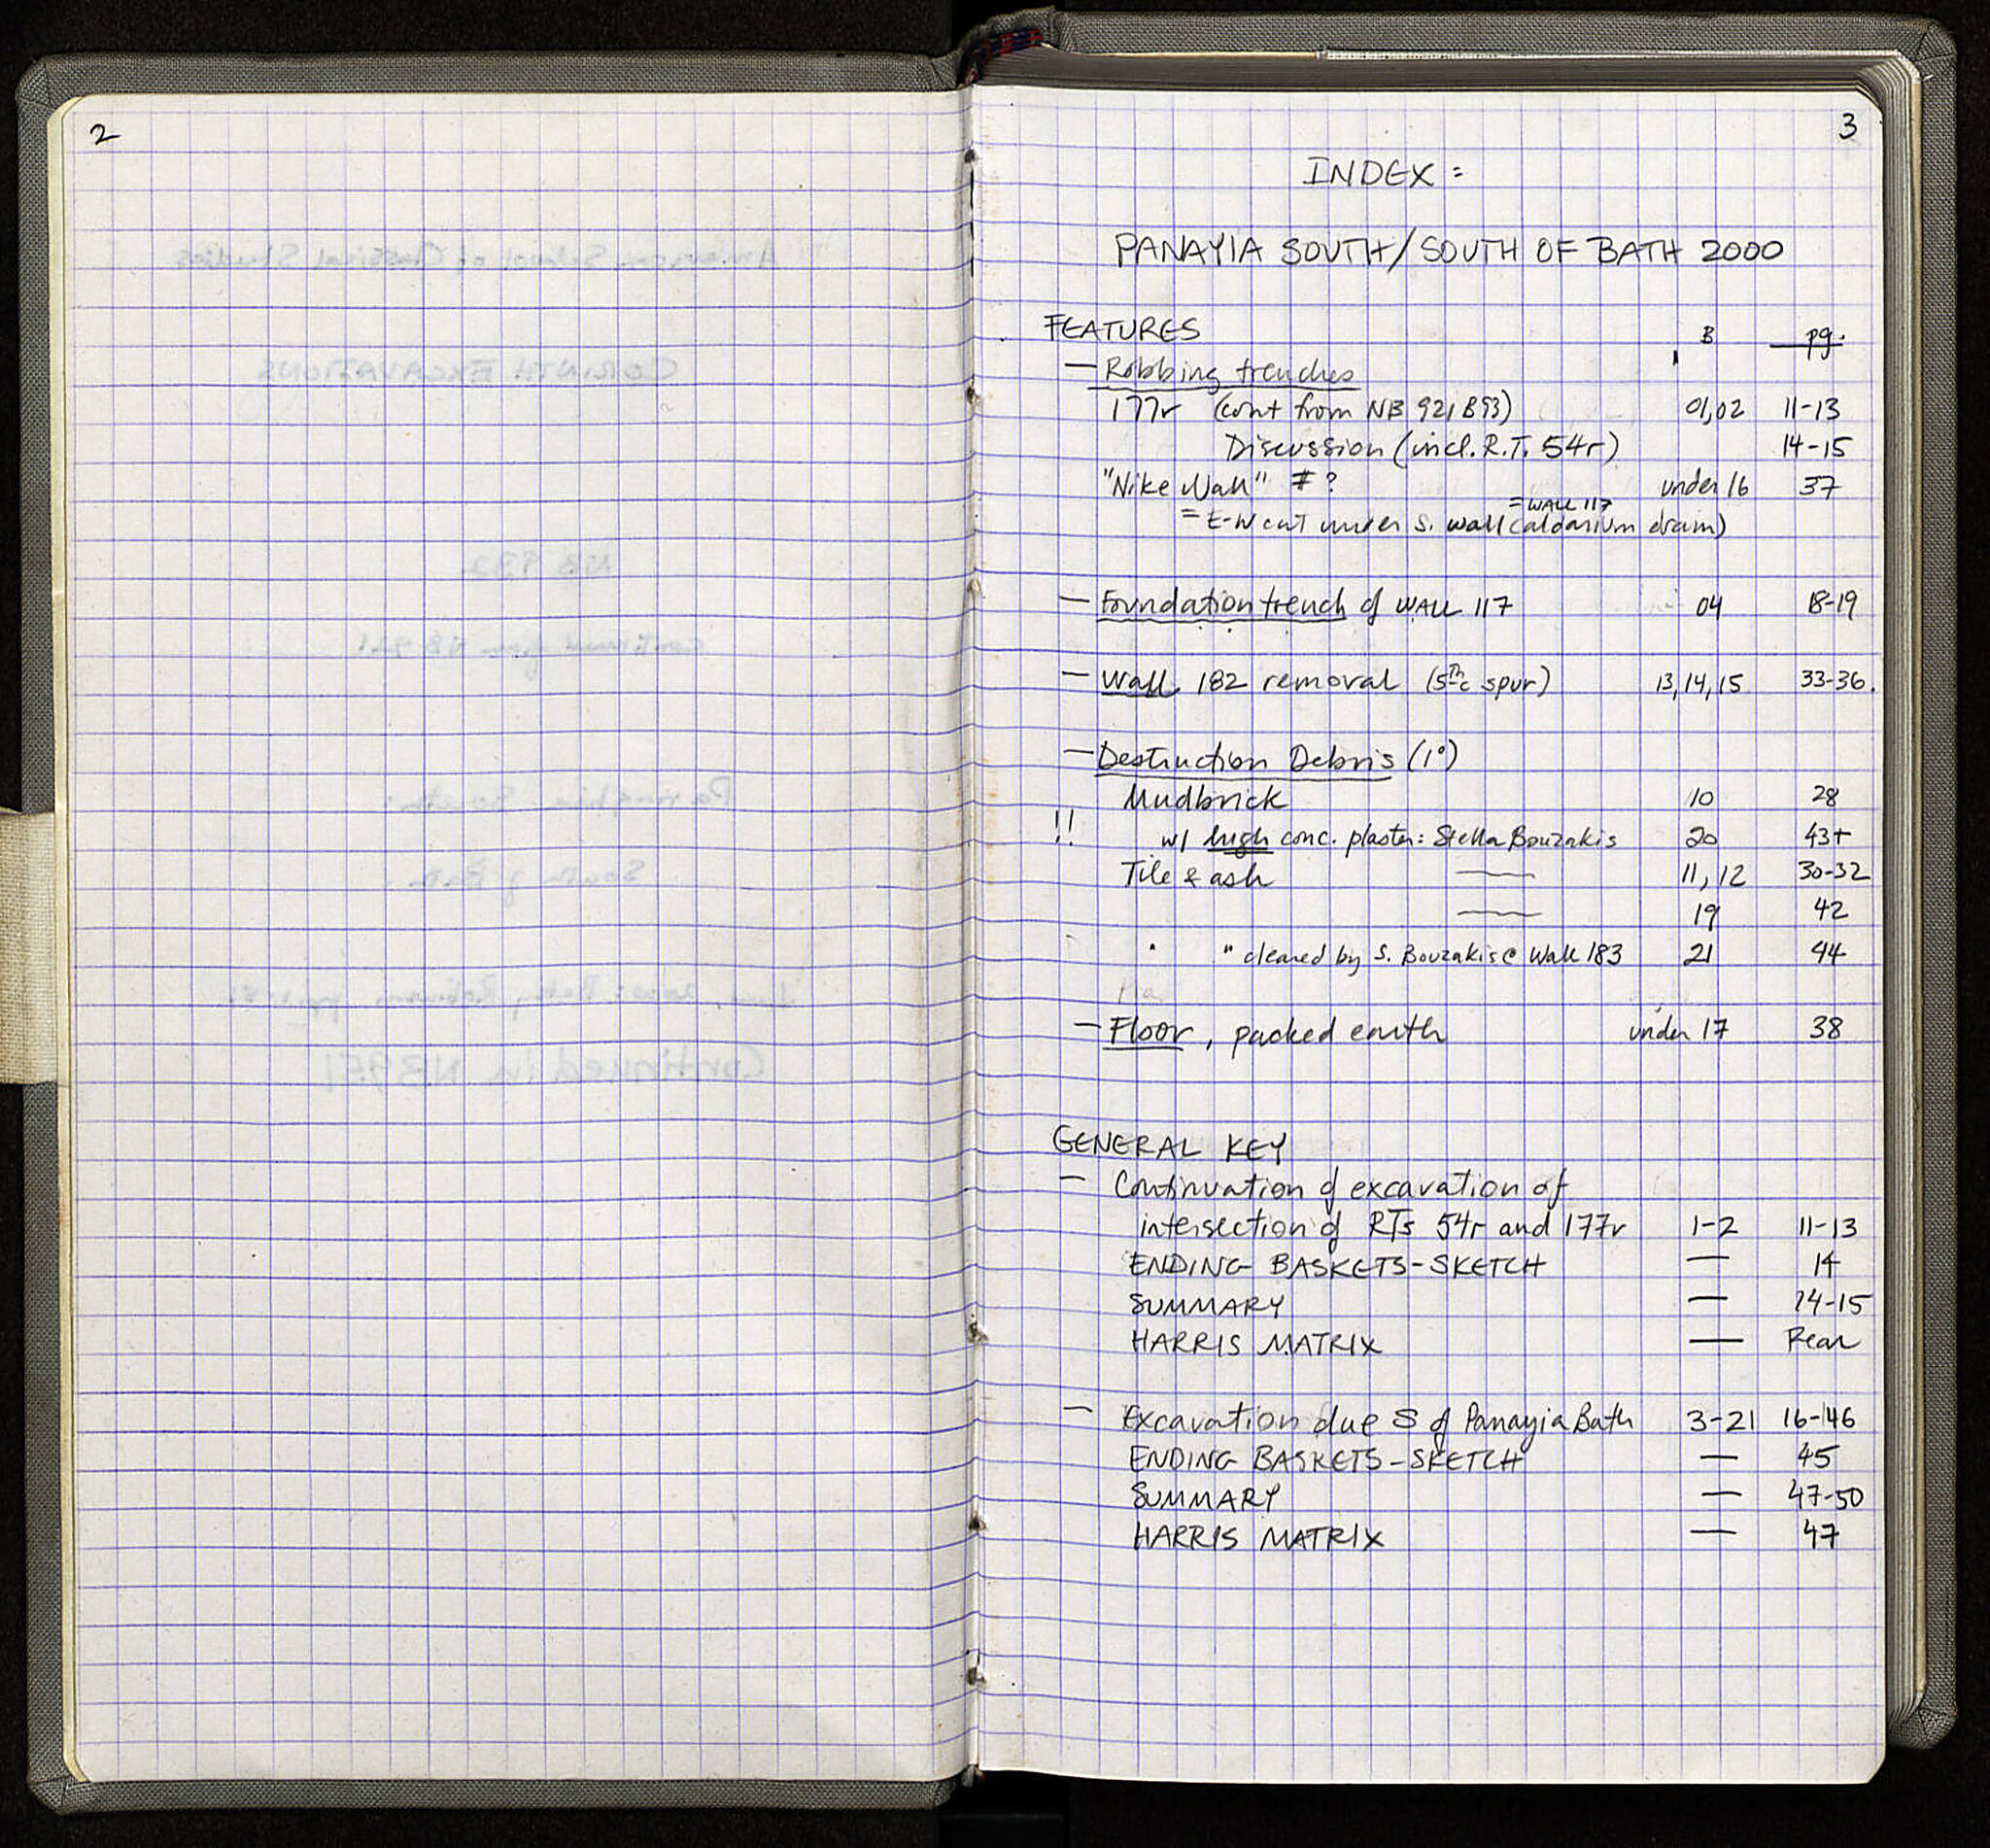 2
3
INDEX:
PANAYIA SOUTH/SOUTH OF BATH 2000
FEATURES B pg.
— Robbing trenches
177r (cont from NB 921 B93) 01,02 11-13
Discussion (incl. R.T. 54r) 14-15
"Nike Wall" #? under 16 37
= WALL 117
= E-W cut under S. wall caldarium drain)
— Foundation trench of WALL 117 04 18-19
— Wall 182 removal (5th c spur) 13,14,15 33-36.
— Destruction Debris (1°)
Mudbrick 10 28
!! w/ high conc. plaster: Stella Bouzakis 20 43+
Tile & ash — 11, 12 30-32
— 19 42
" " cleared by S. Bouzakis @ Wall 183 21 44
— Floor, packed earth under 17 38
GENERAL KEY
— Continuation of excavation of
intersection of RTs 54r and 177r 1-2 11-13
ENDING BASKETS-SKETCH — 14
SUMMARY — 14-15
HARRIS MATRIX — Rear
— Excavation due S of Panayia Bath 3-21 16-46
ENDING BASKETS-SKETCH — 45
SUMMARY — 47-50
HARRIS MATRIX — 47